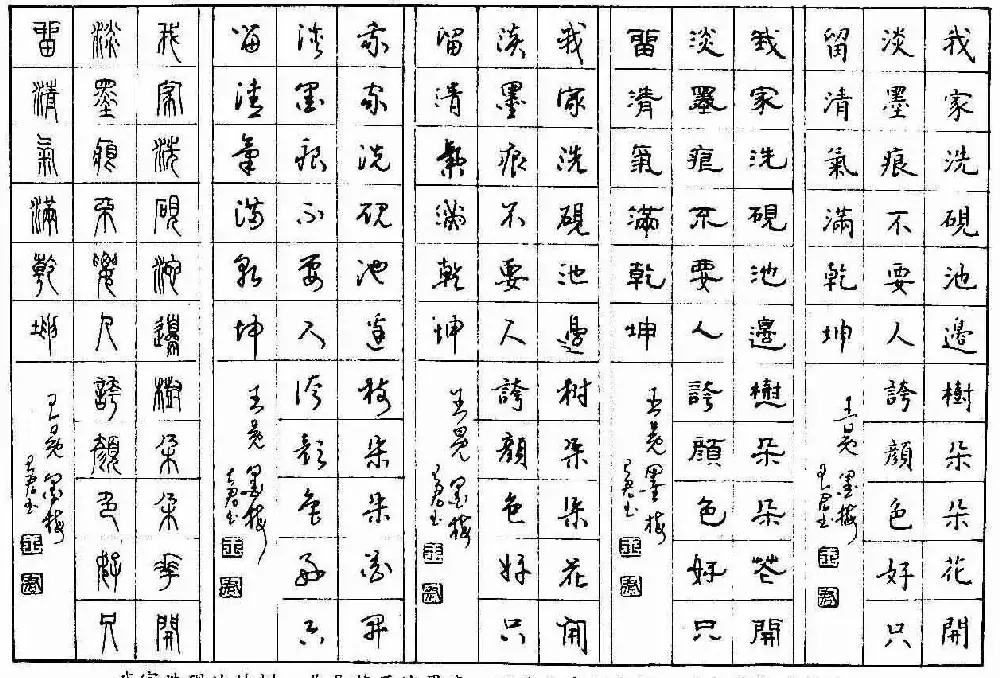 我家洗硯池邊樹朵朵花開
淡墨痕不要人誇顏色好只
留清氣滿乾坤
王冕 墨梅
我家洗硯池邊樹朵朵花開
淡墨痕不要人誇顏色好只
留清氣滿乾坤
王冕 墨梅
我家洗硯池邊樹朵朵花開
淡墨痕不要人誇顏色好只
留清氣滿乾坤
王冕 墨梅
我家洗硯池邊樹朵朵花開
淡墨痕不要人誇顏色好只
留清氣滿乾坤
王冕 墨梅
我家洗硯池邊樹朵朵花開
淡墨痕不要人誇顏色好只
留清氣滿乾坤
王冕 墨梅